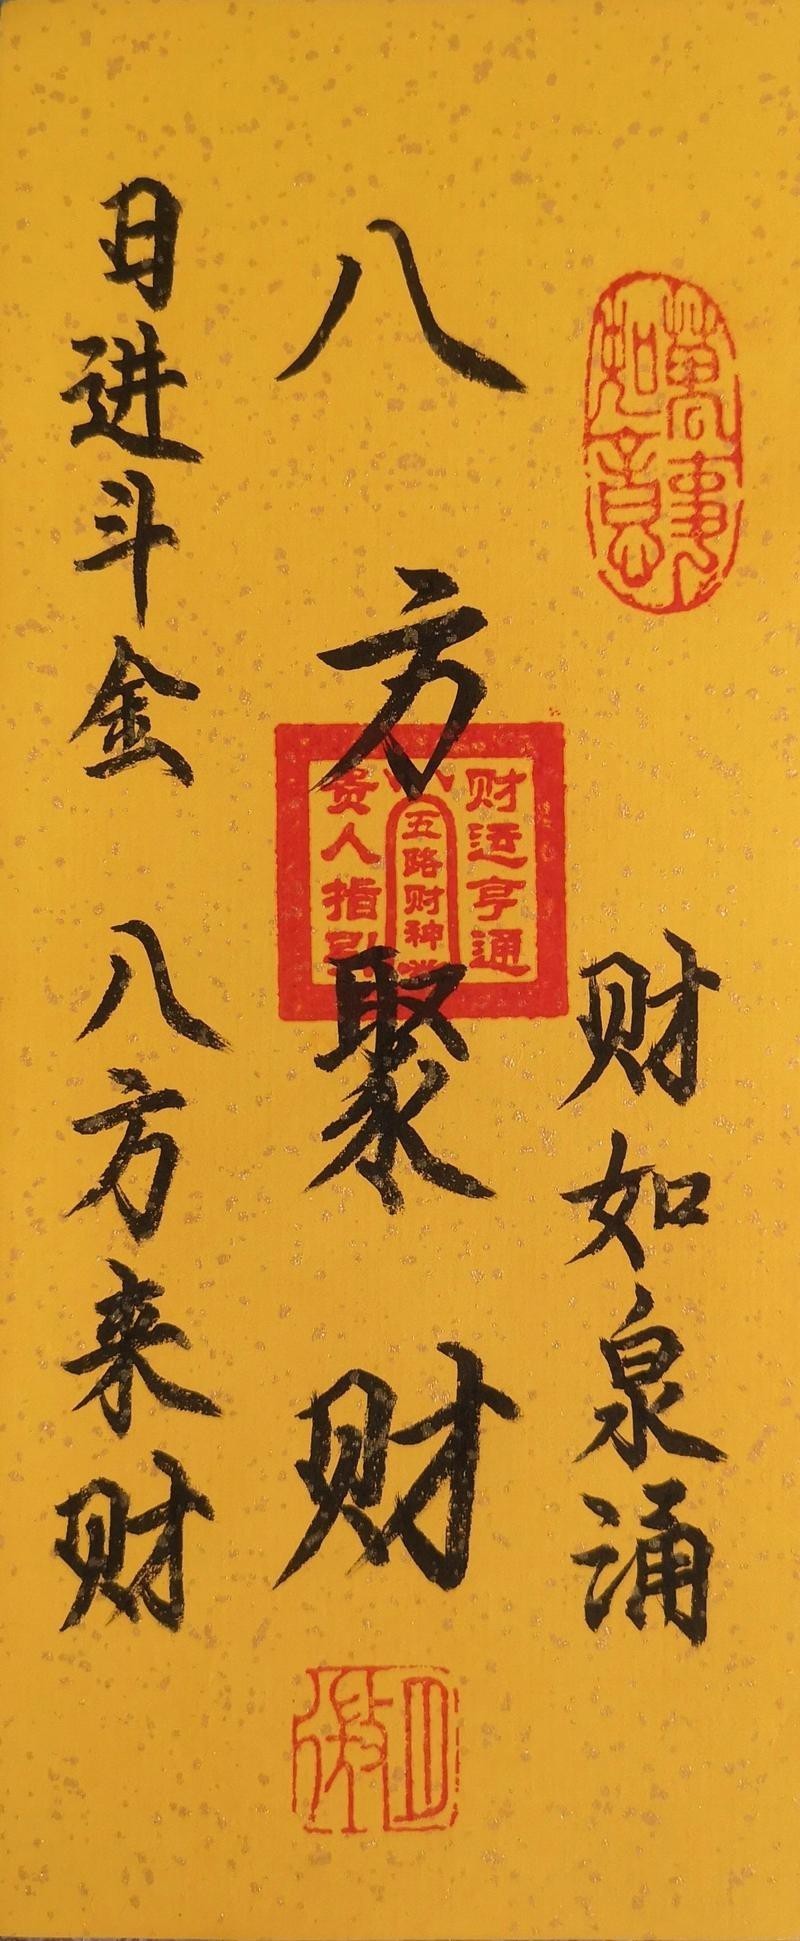 萬事
如意
财如泉涌
八方聚财
财运亨通
五路财神
贵人指引
日进斗金 八方来财